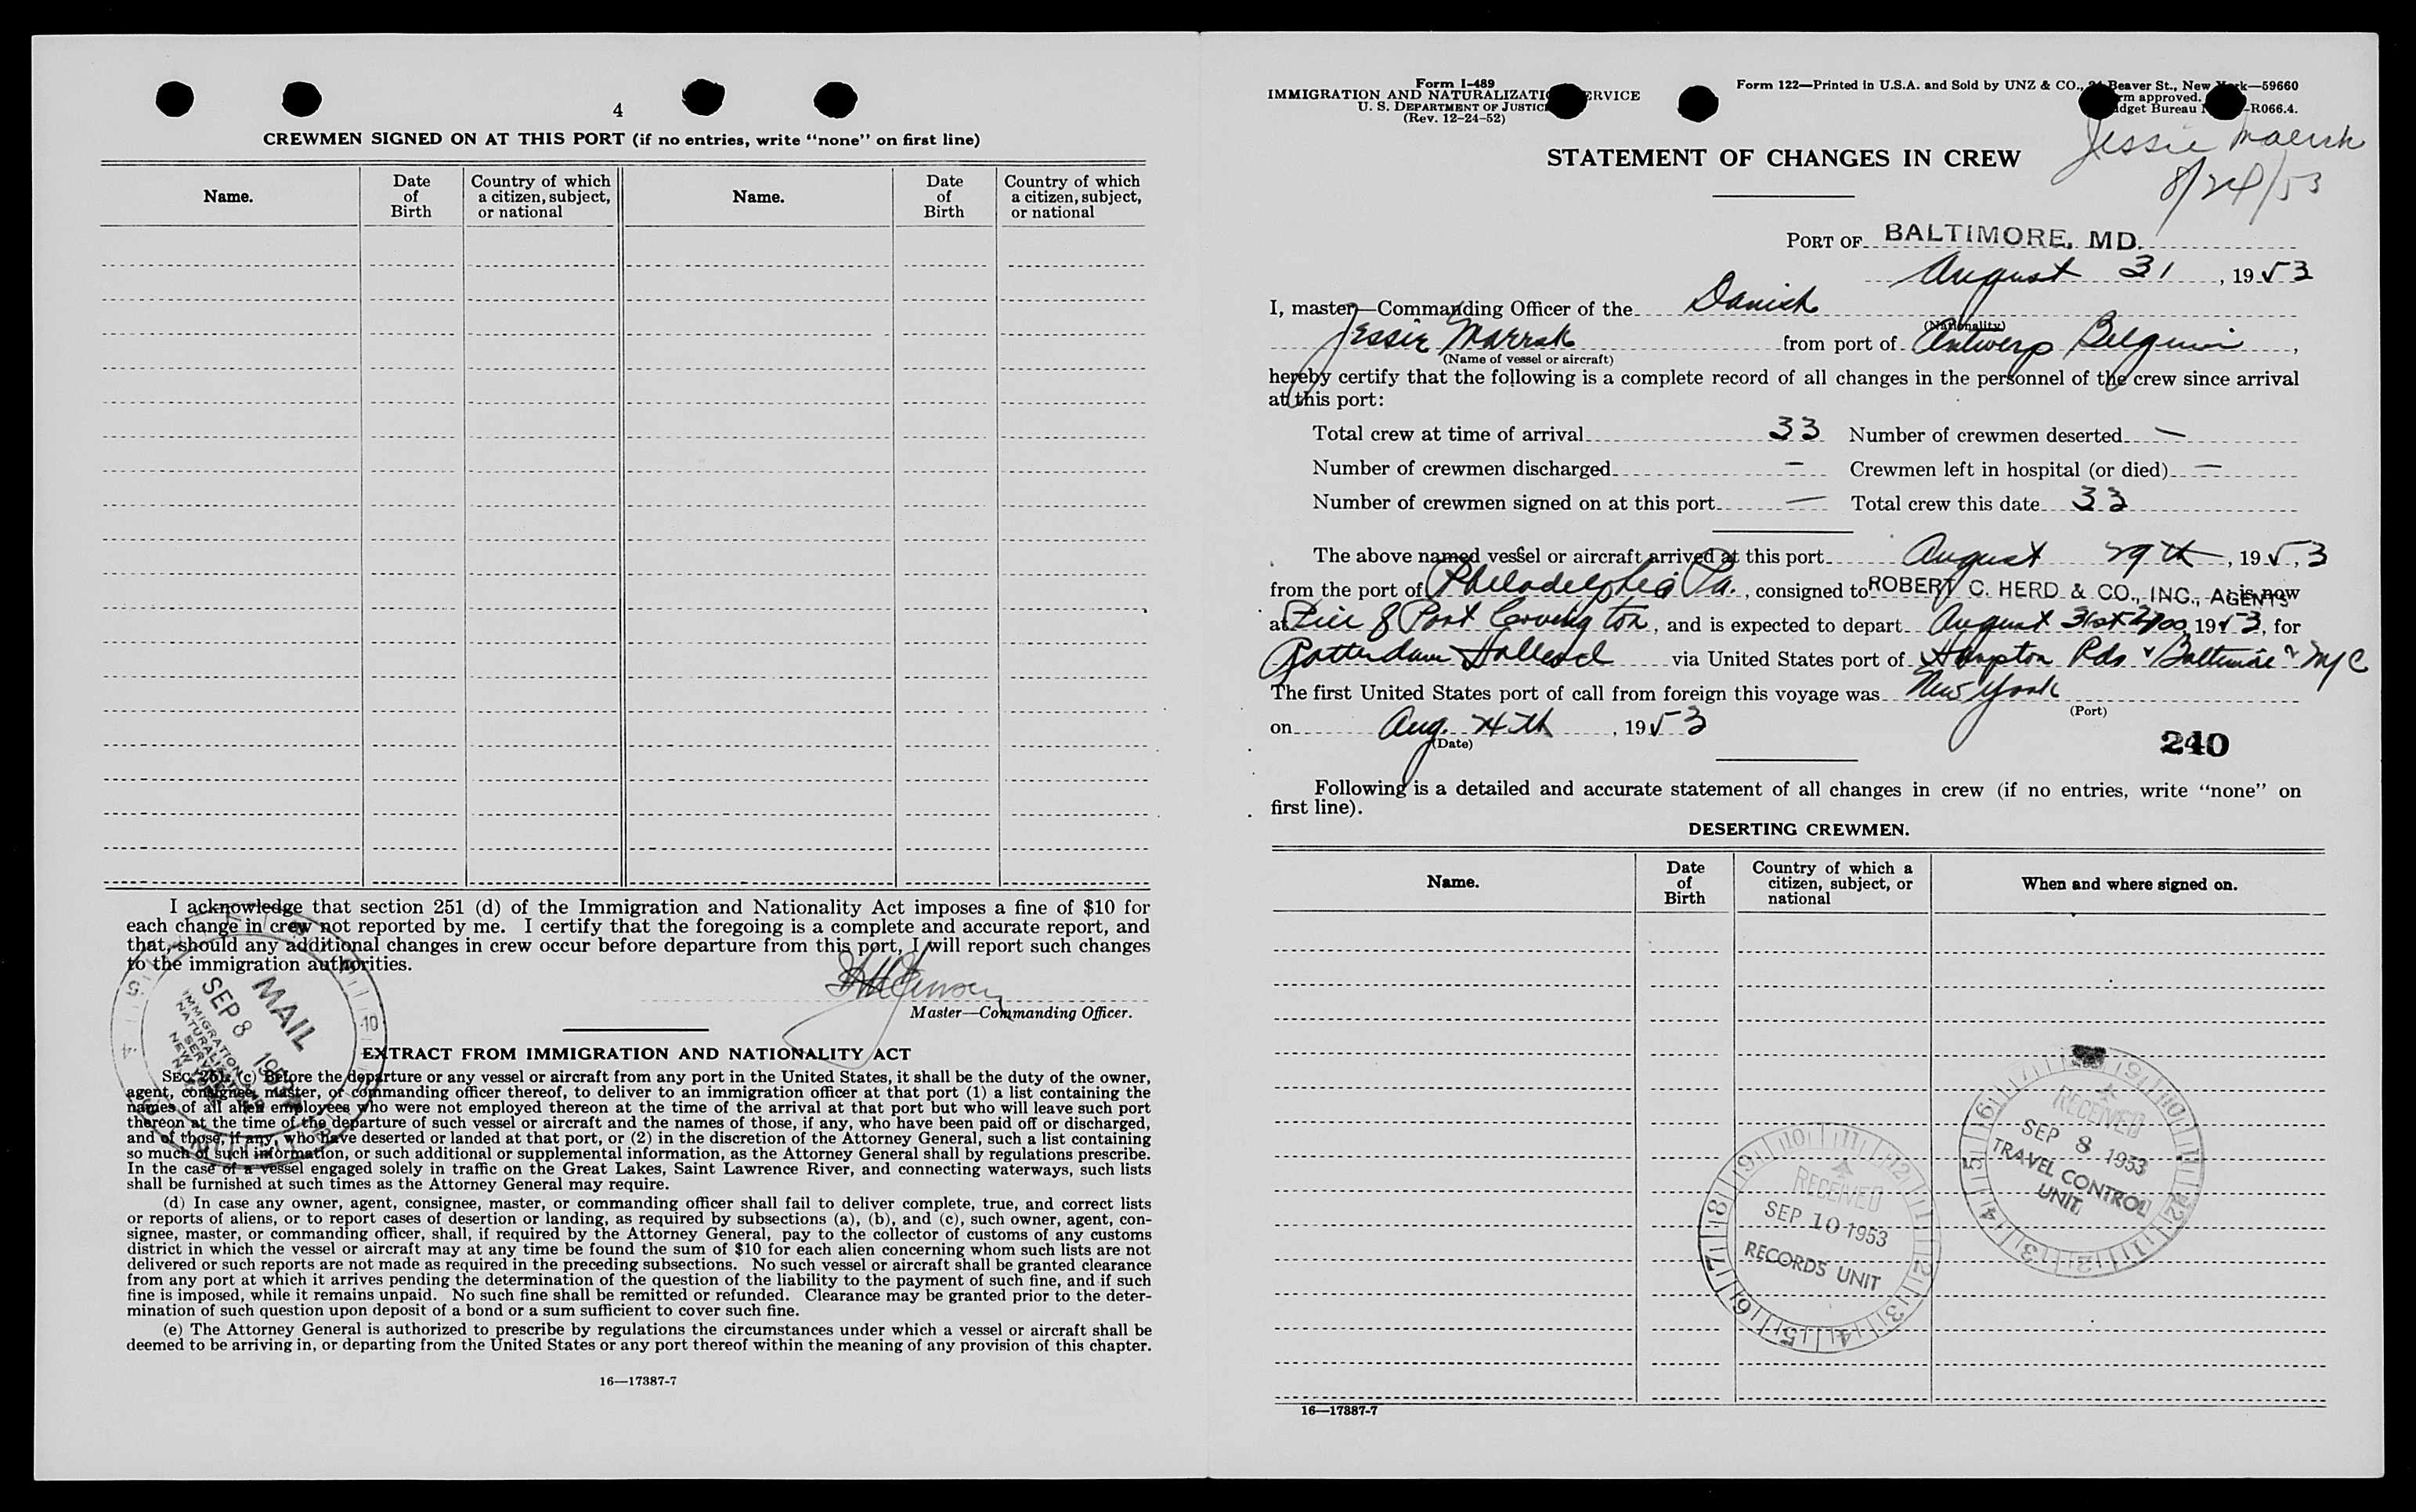 4
CREWMEN SIGNED ON AT THIS PORT (if no entries, write “none” on first line)
Name.
Date
of
Birth
Country of which
a citizen, subject,
or national
Name.
Date
of
Birth
Country of which
a citizen, subject,
or national
I acknowledge that section 251 (d) of the Immigration and Nationality Act imposes a fine of $10 for
each change in crew not reported by me. I certify that the foregoing is a complete and accurate report, and
that, should any additional changes in crew occur before departure from this port, I will report such changes
to the immigration authorities.
Master—Commanding Officer.
MAIL
SEP 8
IMMIGRATION
EXTRACT FROM IMMIGRATION AND NATIONALITY ACT
SEC. 251. (c) Before the departure or any vessel or aircraft from any port in the United States, it shall be the duty of the owner,
agent, consignee, master, or commanding officer thereof, to deliver to an immigration officer at that port (1) a list containing the
names of all alien employees who were not employed thereon at the time of the arrival at that port but who will leave such port
thereon at the time of the departure of such vessel or aircraft and the names of those, if any, who have been paid off or discharged,
and of those, if any, who have deserted or landed at that port, or (2) in the discretion of the Attorney General, such a list containing
so much of such information, or such additional or supplemental information, as the Attorney General shall by regulations prescribe.
In the case of a vessel engaged solely in traffic on the Great Lakes, Saint Lawrence River, and connecting waterways, such lists
shall be furnished at such times as the Attorney General may require.
(d) In case any owner, agent, consignee, master, or commanding officer shall fail to deliver complete, true, and correct lists
or reports of aliens, or to report cases of desertion or landing, as required by subsections (a), (b), and (c), such owner, agent, con-
signee, master, or commanding officer, shall, if required by the Attorney General, pay to the collector of customs of any customs
district in which the vessel or aircraft may at any time be found the sum of $10 for each alien concerning whom such lists are not
delivered or such reports are not made as required in the preceding subsections. No such vessel or aircraft shall be granted clearance
from any port at which it arrives pending the determination of the question of the liability to the payment of such fine, and if such
fine is imposed, while it remains unpaid. No such fine shall be remitted or refunded. Clearance may be granted prior to the deter-
mination of such question upon deposit of a bond or a sum sufficient to cover such fine.
(e) The Attorney General is authorized to prescribe by regulations the circumstances under which a vessel or aircraft shall be
deemed to be arriving in, or departing from the United States or any port thereof within the meaning of any provision of this chapter.
16—17387-7
Form I-489
IMMIGRATION AND NATURALIZATION SERVICE
U. S. DEPARTMENT OF JUSTICE
(Rev. 12-24-52)
Form 122—Printed in U.S.A. and Sold by UNZ & CO., 24 Beaver St., New York—59660
Form approved.
Budget Bureau -R066.4.
Jessie Maersk
8/24/53
STATEMENT OF CHANGES IN CREW
PORT OF BALTIMORE, MD.
August 31, 1953
I, master—Commanding Officer of the Danish
(Nationality)
Jessie Maersk from port of Antwerp Belgium,
(Name of vessel or aircraft)
hereby certify that the following is a complete record of all changes in the personnel of the crew since arrival
at this port:
Total crew at time of arrival 33 Number of crewmen deserted —
Number of crewmen discharged — Crewmen left in hospital (or died) —
Number of crewmen signed on at this port — Total crew this date 33
The above named vessel or aircraft arrived at this port August 29th, 1953
from the port of Philadelphia Pa., consigned to ROBERT C. HERD & CO., INC., AGENTS is now
at Pier 8 Port Covington, and is expected to depart August 31st 1953, for
Rotterdam Holland via United States port of Hampton Rds & Baltimore & NYC
The first United States port of call from foreign this voyage was New York
(Port)
on Aug. 24th, 1953
(Date)
240
Following is a detailed and accurate statement of all changes in crew (if no entries, write “none” on
first line).
DESERTING CREWMEN.
Name.
Date
of
Birth
Country of which a
citizen, subject, or
national
When and where signed on.
RECEIVED
SEP 8 1953
TRAVEL CONTROL
UNIT
RECEIVED
SEP 10 1953
RECORDS UNIT
16—17387-7